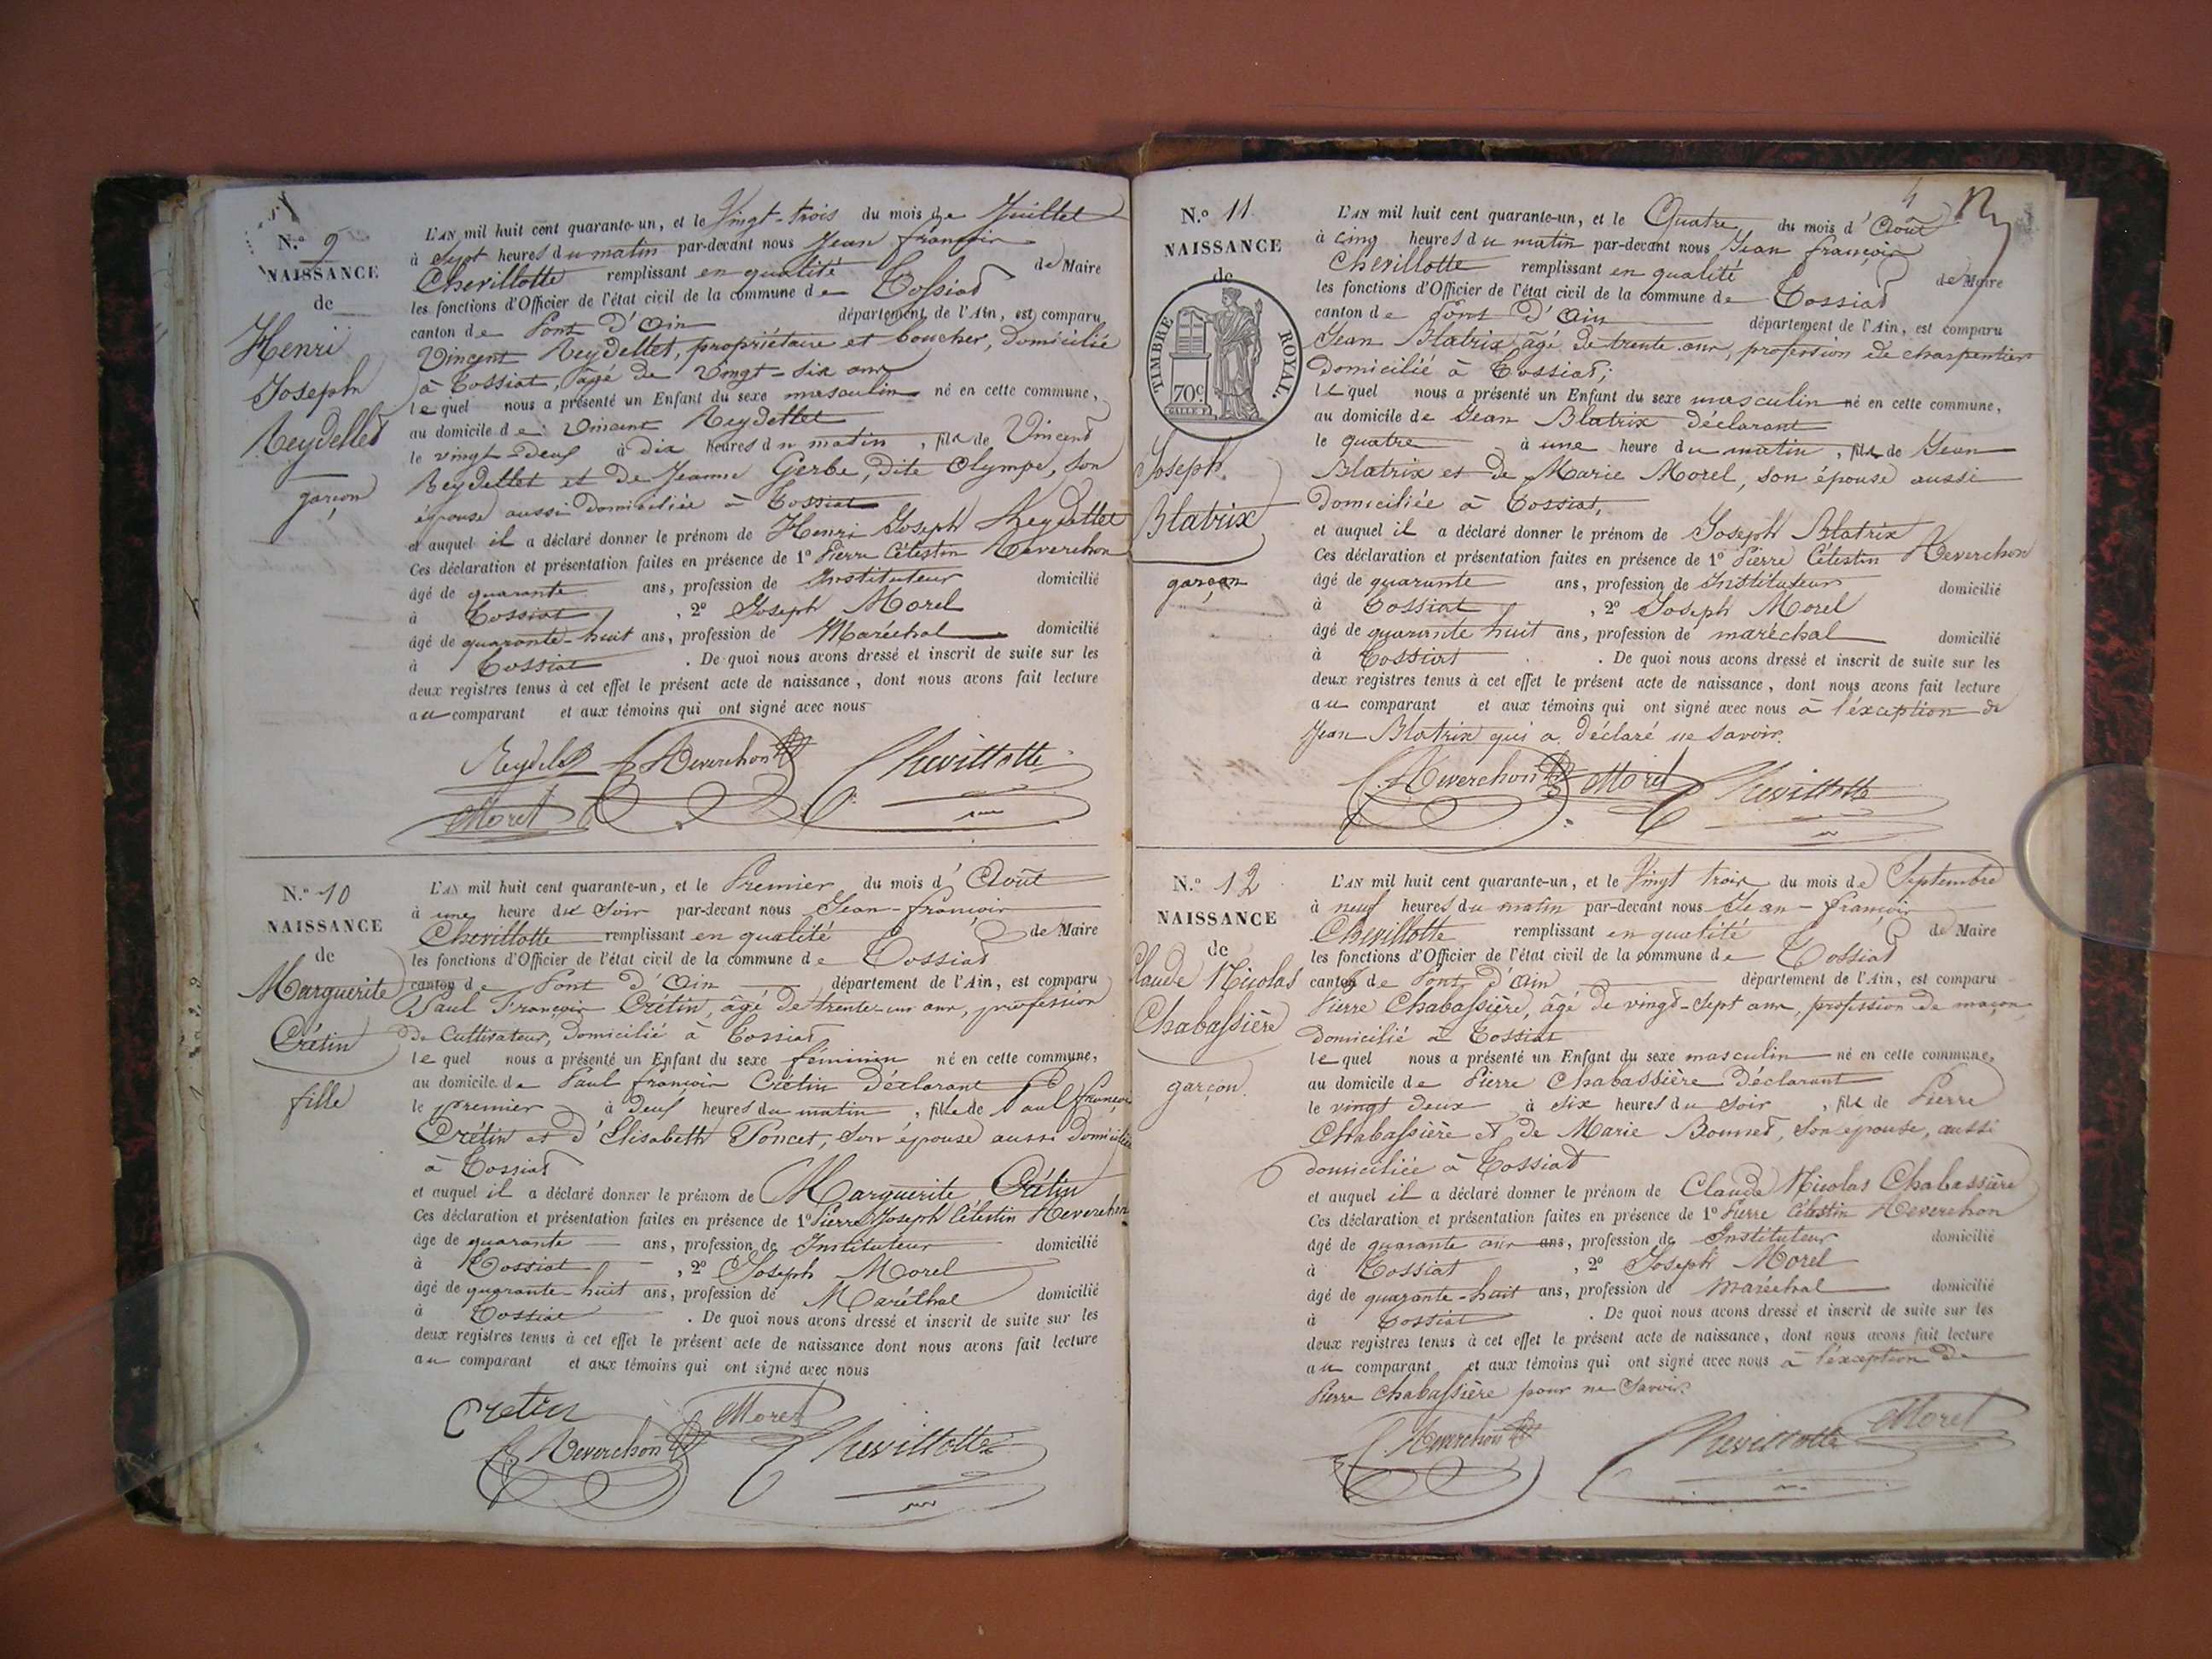 N.º 9
NAISSANCE
de
Henri
Joseph
Reydellet
garçon
L'AN mil huit cent quarante-un, et le Vingt-trois du mois de Juillet
à sept heures du matin par-devant nous Jean françois
Chevillotte remplissant en qualité de Maire
les fonctions d'Officier de l'état civil de la commune de Tossiat
canton de Pont d'Ain département de l'Ain, est comparu
Vincent Reydellet, propriétaire et boucher, domicilié
à Tossiat, âgé de Vingt-six ans
lequel nous a présenté un Enfant du sexe masculin né en cette commune,
au domicile de Vincent Reydellet
le vingt-deux à dix heures du matin, fils de Vincent
Reydellet et de Jeanne Gerbe, dite Olympe, son
épouse aussi domiciliée à Tossiat
et auquel il a déclaré donner le prénom de Henri Joseph Reydellet
Ces déclaration et présentation faites en présence de 1º Pierre Célestin Reverchon
âgé de quarante ans, profession de Instituteur domicilié
à Tossiat, 2º Joseph Morel
âgé de quarante-huit ans, profession de Maréchal domicilié
à Tossiat. De quoi nous avons dressé et inscrit de suite sur les
deux registres tenus à cet effet le présent acte de naissance, dont nous avons fait lecture
au comparant et aux témoins qui ont signé avec nous
Reydellet Reverchon Chevillotte
Morel
N.º 10
NAISSANCE
de
Marguerite
Crétin
fille
L'AN mil huit cent quarante-un, et le Premier du mois d'Août
à une heure du soir par-devant nous Jean-françois
Chevillotte remplissant en qualité de Maire
les fonctions d'Officier de l'état civil de la commune de Tossiat
canton de Pont d'Ain département de l'Ain, est comparu
Paul François Crétin, âgé de trente-un ans, profession
de Cultivateur, domicilié à Tossiat
lequel nous a présenté un Enfant du sexe féminin né en cette commune,
au domicile de Paul françois Crétin déclarant
le premier à deux heures du matin, fille de Paul françois
Crétin et d'Elisabeth Poncet, son épouse aussi domiciliée
à Tossiat
et auquel il a déclaré donner le prénom de Marguerite Crétin
Ces déclaration et présentation faites en présence de 1º Pierre Joseph Célestin Reverchon
âgé de quarante ans, profession de Instituteur domicilié
à Tossiat, 2º Joseph Morel
âgé de quarante-huit ans, profession de Maréchal domicilié
à Tossiat. De quoi nous avons dressé et inscrit de suite sur les
deux registres tenus à cet effet le présent acte de naissance dont nous avons fait lecture
au comparant et aux témoins qui ont signé avec nous
Cretin Morel
Reverchon Chevillotte
4
N.º 11
NAISSANCE
de
TIMBRE ROYAL.
70c
Joseph
Blatrix
garçon
L'AN mil huit cent quarante-un, et le Quatre du mois d'Août
à cinq heures du matin par-devant nous Jean françois
Chevillotte remplissant en qualité de Maire
les fonctions d'Officier de l'état civil de la commune de Tossiat
canton de Pont d'Ain département de l'Ain, est comparu
Jean Blatrix, âgé de trente ans, profession de charpentier
domicilié à Tossiat;
lequel nous a présenté un Enfant du sexe masculin né en cette commune,
au domicile de Jean Blatrix déclarant
le quatre à une heure du matin, fils de Jean
Blatrix et de Marie Morel, son épouse aussi
domiciliée à Tossiat,
et auquel il a déclaré donner le prénom de Joseph Blatrix
Ces déclaration et présentation faites en présence de 1º Pierre Célestin Reverchon
âgé de quarante ans, profession de Instituteur domicilié
à Tossiat, 2º Joseph Morel
âgé de quarante huit ans, profession de maréchal domicilié
à Tossiat. De quoi nous avons dressé et inscrit de suite sur les
deux registres tenus à cet effet le présent acte de naissance, dont nous avons fait lecture
au comparant et aux témoins qui ont signé avec nous à l'éxception de
Jean Blatrix qui a déclaré ne savoir.
Reverchon Morel Chevillotte
N.º 12
NAISSANCE
de
Claude Nicolas
Chabassière
garçon
L'AN mil huit cent quarante-un, et le Vingt trois du mois de Septembre
à neuf heures du matin par-devant nous Jean-françois
Chevillotte remplissant en qualité de Maire
les fonctions d'Officier de l'état civil de la commune de Tossiat
canton de Pont d'Ain département de l'Ain, est comparu
Pierre Chabassière, âgé de vingt-sept ans, profession de maçon
domicilié à Tossiat
lequel nous a présenté un Enfant du sexe masculin né en cette commune,
au domicile de Pierre Chabassière déclarant
le vingt deux à six heures du soir, fils de Pierre
Chabassière et de Marie Bonnet, son épouse, aussi
domiciliée à Tossiat
et auquel il a déclaré donner le prénom de Claude Nicolas Chabassière
Ces déclaration et présentation faites en présence de 1º Pierre Célestin Reverchon
âgé de quarante ans ans, profession de Instituteur domicilié
à Tossiat, 2º Joseph Morel
âgé de quarante-huit ans, profession de maréchal domicilié
à Tossiat. De quoi nous avons dressé et inscrit de suite sur les
deux registres tenus à cet effet le présent acte de naissance, dont nous avons fait lecture
au comparant et aux témoins qui ont signé avec nous à l'éxception de
Pierre Chabassière pour ne savoir.
Reverchon Chevillotte Morel